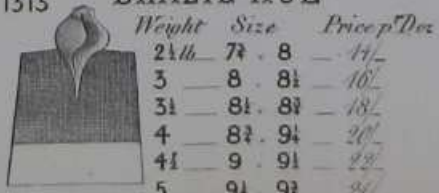 1313 BRAZIL HOE
Weight Size Price pr Doz
2½ lb 7¾ . 8 14/-
3 8 . 8½ 16/-
3½ 8½ . 8¾ 18/-
4 8¾ . 9¼ 20/-
4½ 9 . 9½ 22/-
5 9½ . 9¾